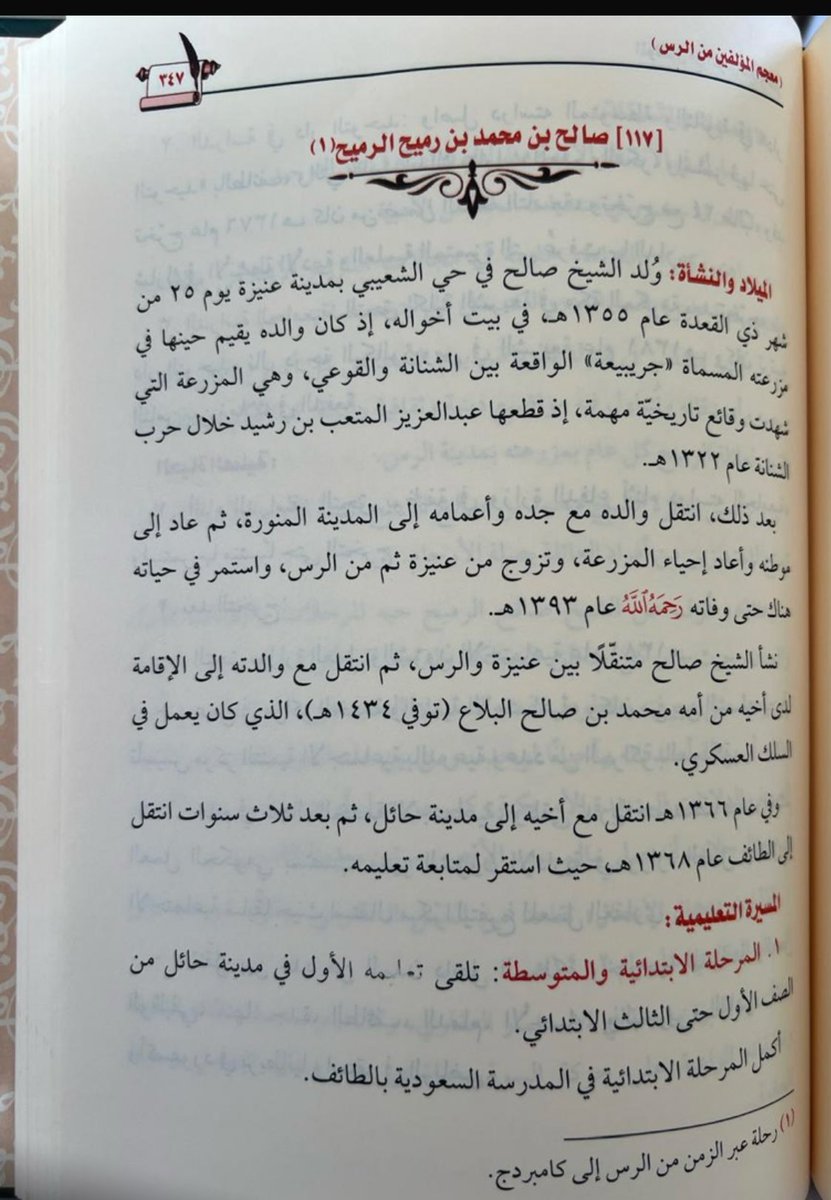 (معجم المؤلفين من الرس)
٣٤٧
[١١٧] صالح بن محمد بن رميح الرميح(١)
الميلاد والنشأة: وُلد الشيخ صالح في حي الشعيبي بمدينة عنيزة يوم ٢٥ من
شهر ذي القعدة عام ١٣٥٥هـ، في بيت أخواله، إذ كان والده يقيم حينها في
مزرعته المسماة «جريبيعة» الواقعة بين الشنانة والقوعي، وهي المزرعة التي
شهدت وقائع تاريخيّة مهمة، إذ قطعها عبدالعزيز المتعب بن رشيد خلال حرب
الشنانة عام ١٣٢٢هـ.
بعد ذلك، انتقل والده مع جده وأعمامه إلى المدينة المنورة، ثم عاد إلى
موطنه وأعاد إحياء المزرعة، وتزوج من عنيزة ثم من الرس، واستمر في حياته
هناك حتى وفاته رَحِمَهُ ٱللَّهُ عام ١٣٩٣هـ.
نشأ الشيخ صالح متنقّلًا بين عنيزة والرس، ثم انتقل مع والدته إلى الإقامة
لدى أخيه من أمه محمد بن صالح البلاع (توفي ١٤٣٤هـ)، الذي كان يعمل في
السلك العسكري.
وفي عام ١٣٦٦هـ انتقل مع أخيه إلى مدينة حائل، ثم بعد ثلاث سنوات انتقل
إلى الطائف عام ١٣٦٨هـ، حيث استقر لمتابعة تعليمه.
المسيرة التعليمية:
١. المرحلة الابتدائية والمتوسطة: تلقى تعليمه الأول في مدينة حائل من
الصف الأول حتى الثالث الابتدائي.
أكمل المرحلة الابتدائية في المدرسة السعودية بالطائف.
(١) رحلة عبر الزمن من الرس إلى كامبردج.